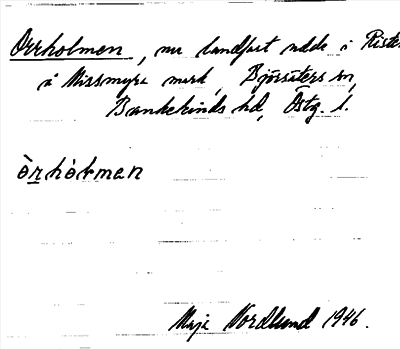 Orrholmen, nu landfast udde i Risten
å Missmyra mark, Björsäters sn,
Bankekinds hd, Östg. l.
òrhòɫmen
Maja Nordlund 1946.